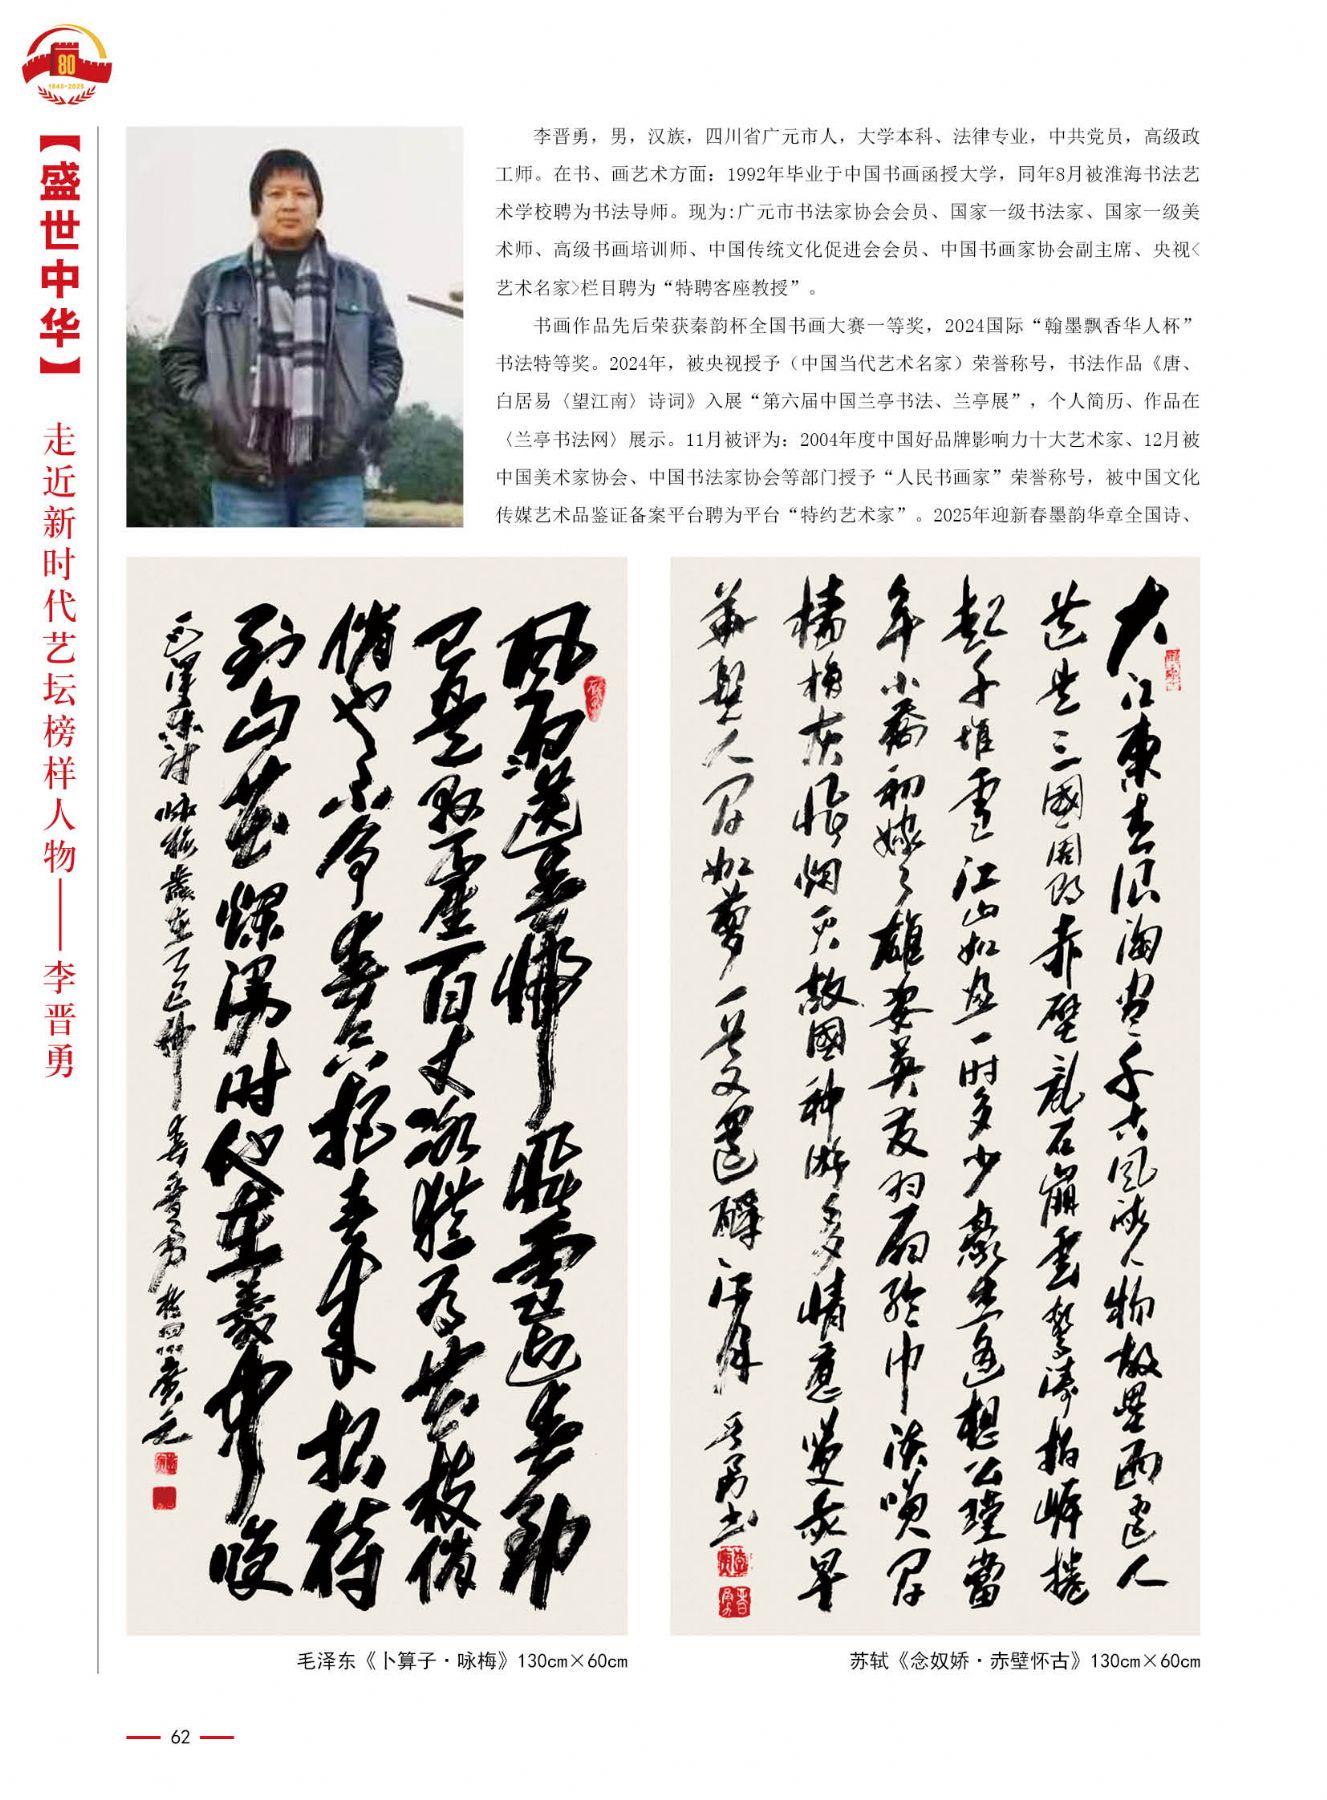 80
1945-2025
【盛世中华】
走近新时代艺坛榜样人物——李晋勇
李晋勇，男，汉族，四川省广元市人，大学本科、法律专业，中共党员，高级政
工师。在书、画艺术方面：1992年毕业于中国书画函授大学，同年8月被淮海书法艺
术学校聘为书法导师。现为:广元市书法家协会会员、国家一级书法家、国家一级美
术师、高级书画培训师、中国传统文化促进会会员、中国书画家协会副主席、央视<
艺术名家>栏目聘为“特聘客座教授”。
书画作品先后荣获秦韵杯全国书画大赛一等奖，2024国际“翰墨飘香华人杯”
书法特等奖。2024年，被央视授予（中国当代艺术名家）荣誉称号，书法作品《唐、
白居易〈望江南〉诗词》入展“第六届中国兰亭书法、兰亭展”，个人简历、作品在
〈兰亭书法网〉展示。11月被评为：2004年度中国好品牌影响力十大艺术家、12月被
中国美术家协会、中国书法家协会等部门授予“人民书画家”荣誉称号，被中国文化
传媒艺术品鉴证备案平台聘为平台“特约艺术家”。2025年迎新春墨韵华章全国诗、
风雨送春归飛雪迎春到
已是懸崖百丈冰猶有花枝俏
俏也不争春只把春来報待
到山花爛漫时她在叢中咲
毛泽东《卜算子·咏梅》130cm×60cm
大江東去浪淘尽千古风流人物故壘西边人
道是三國周郎赤壁乱石崩雲驚濤拍岸捲
起千堆雪江山如画一时多少豪杰遥想公瑾當
年小喬初嫁了雄姿英发羽扇纶巾谈笑间
樯櫓灰飛烟灭故國神游多情應笑我早
華髮人间如夢一尊还酹江月 晋勇书
苏轼《念奴娇·赤壁怀古》130cm×60cm
62